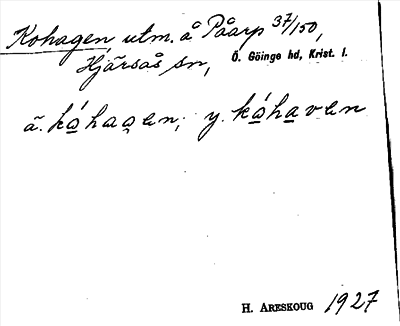 Kohagen, utm. å Påarp 37/150,
Hjärsås sn, Ö. Göinge hd, Krist. l.
ä. kóhagen; y. kóhaven
H. ARESKOUG 1927